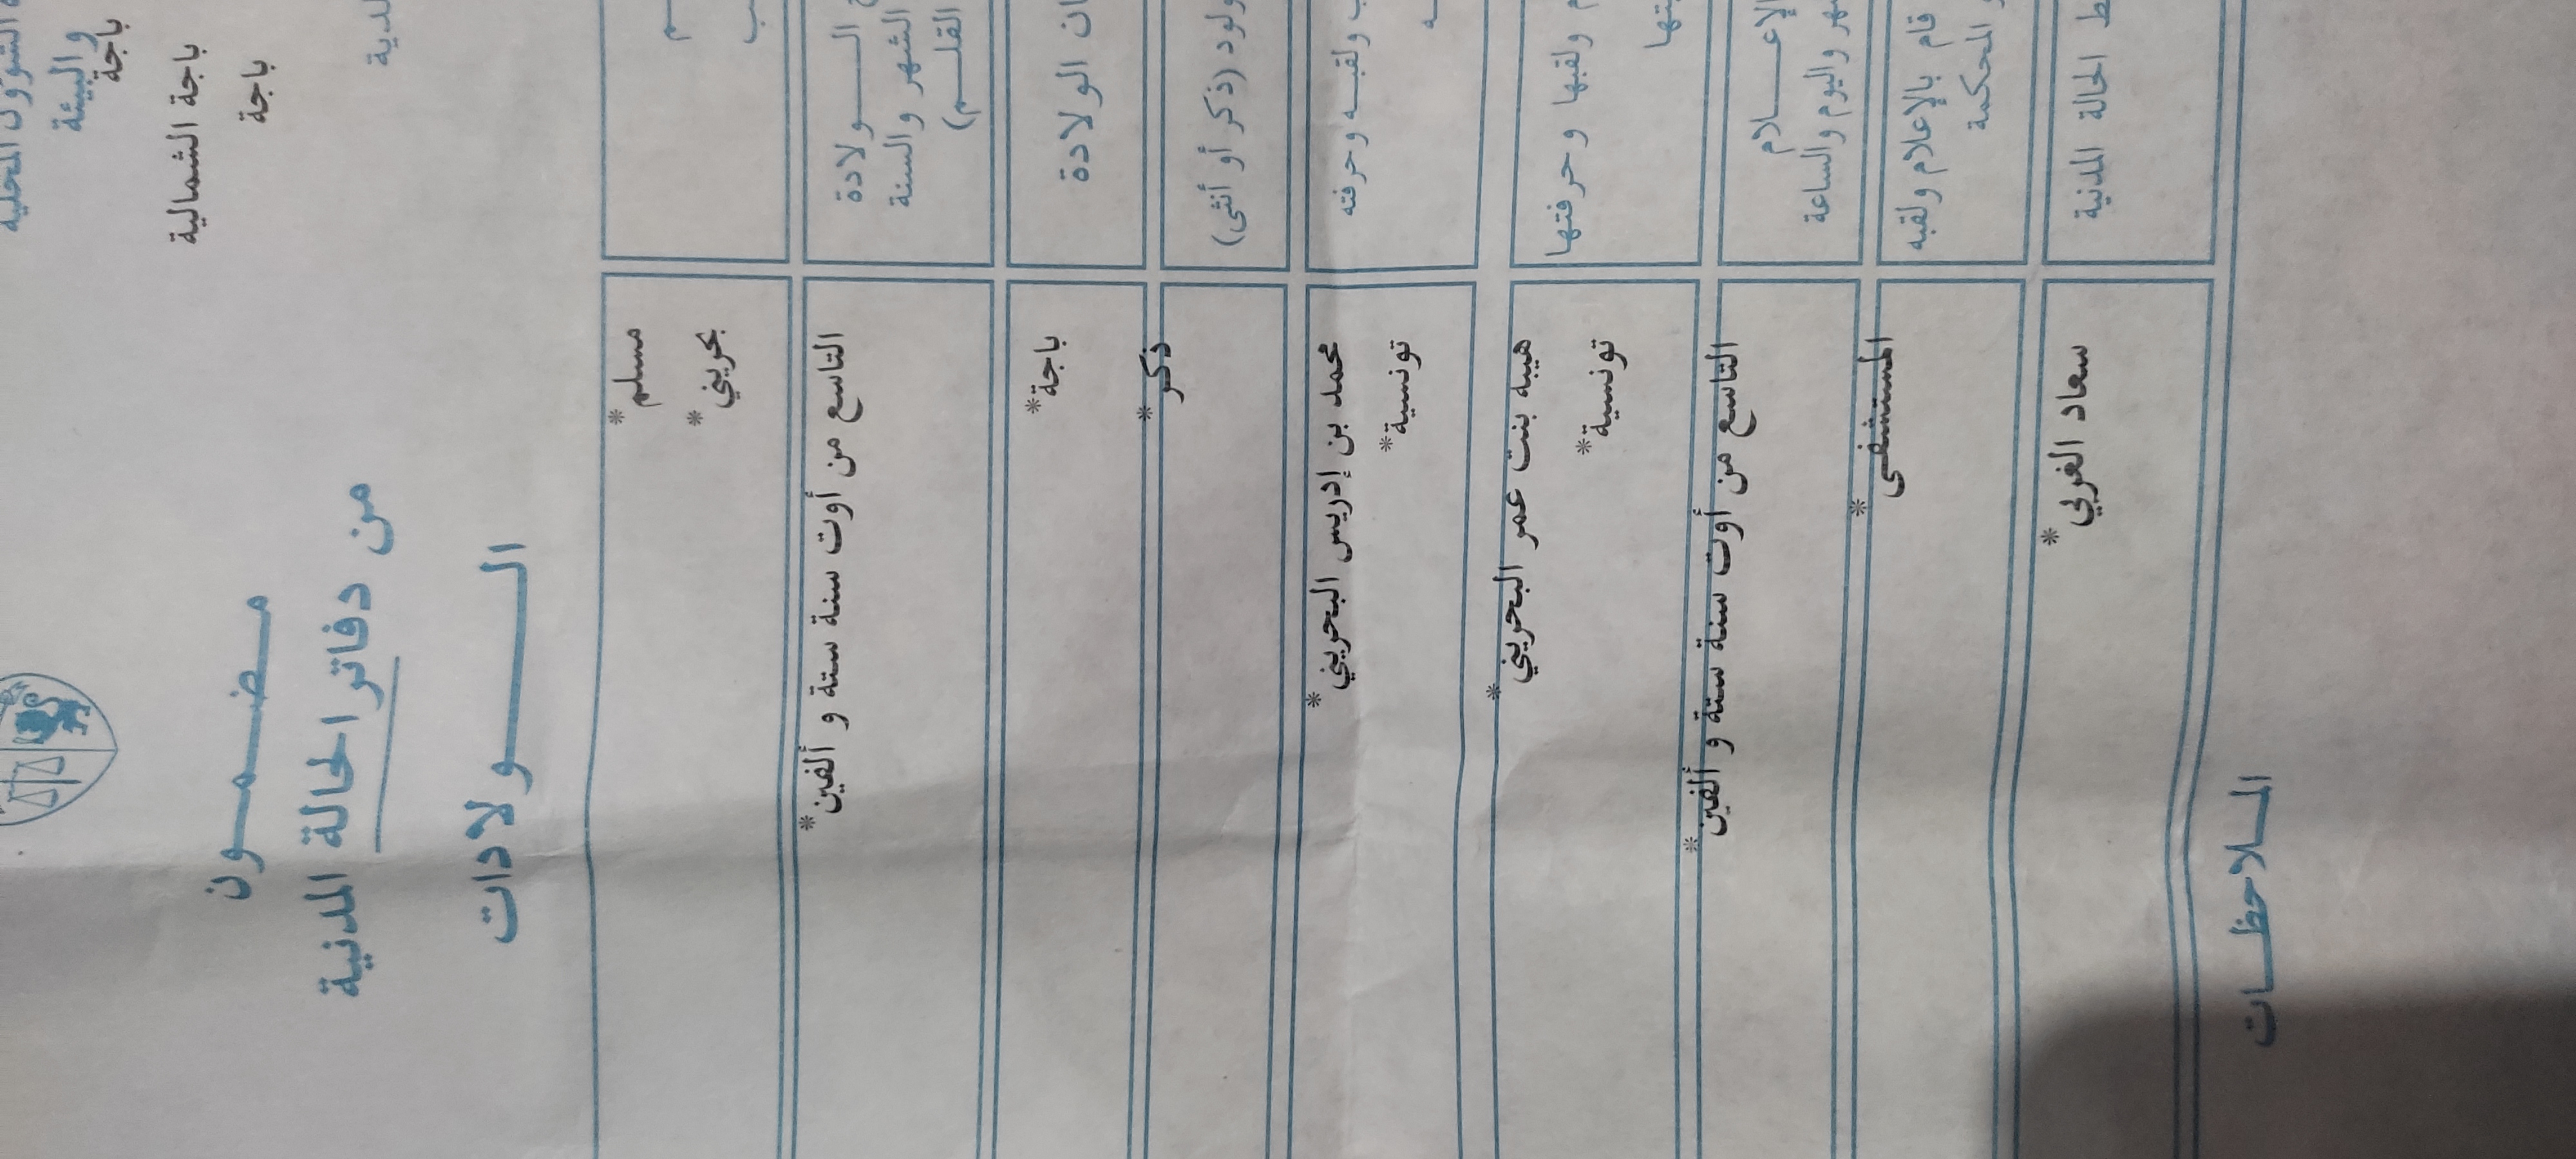 الشؤون المحلية
والبيئة
باجة
باجة الشمالية
باجة
مضمون
من دفاتر الحالة المدنية
الولادات
مسلم *
بحريني *
الولادة
الشهر والسنة
القلم)
التاسع من أوت سنة ستة و ألفين *
الولادة
باجة *
(ذكر أو أنثى)
ذكر *
ولقبه وحرفته
محمد بن إدريس البحريني *
تونسية *
ولقبها و حرفتها
هيبه بنت عمر البحريني *
تونسية *
الإعلام
واليوم والساعة
التاسع من أوت سنة ستة و ألفين *
قام بالإعلام ولقبه
المحكمة
المستشفى *
الحالة المدنية
سعاد الغربي *
الملاحظات